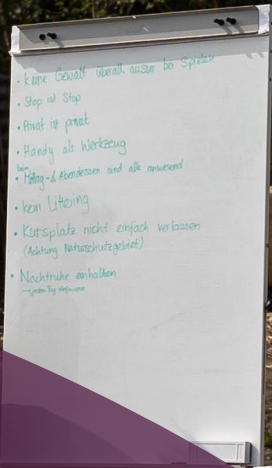 • Keine Gewalt überall ausser bei Spielen
• Stop ist Stop
• Privat ist privat
• Handy als Werkzeug
beim
• Mittag- & Abendessen sind alle anwesend
• kein Littering
• Kursplatz nicht einfach verlassen
(Achtung Naturschutzgebiet)
• Nachtruhe einhalten